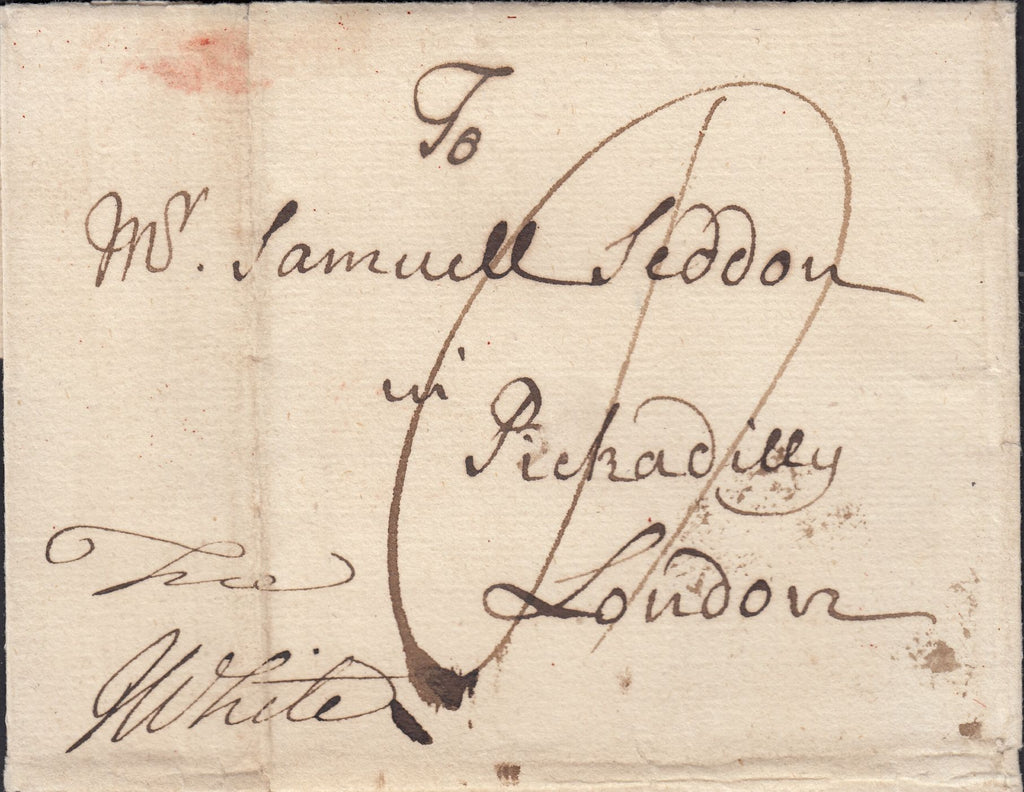 To
Mr. Samuell Seddon
in
Pickadilly
London
Free
White